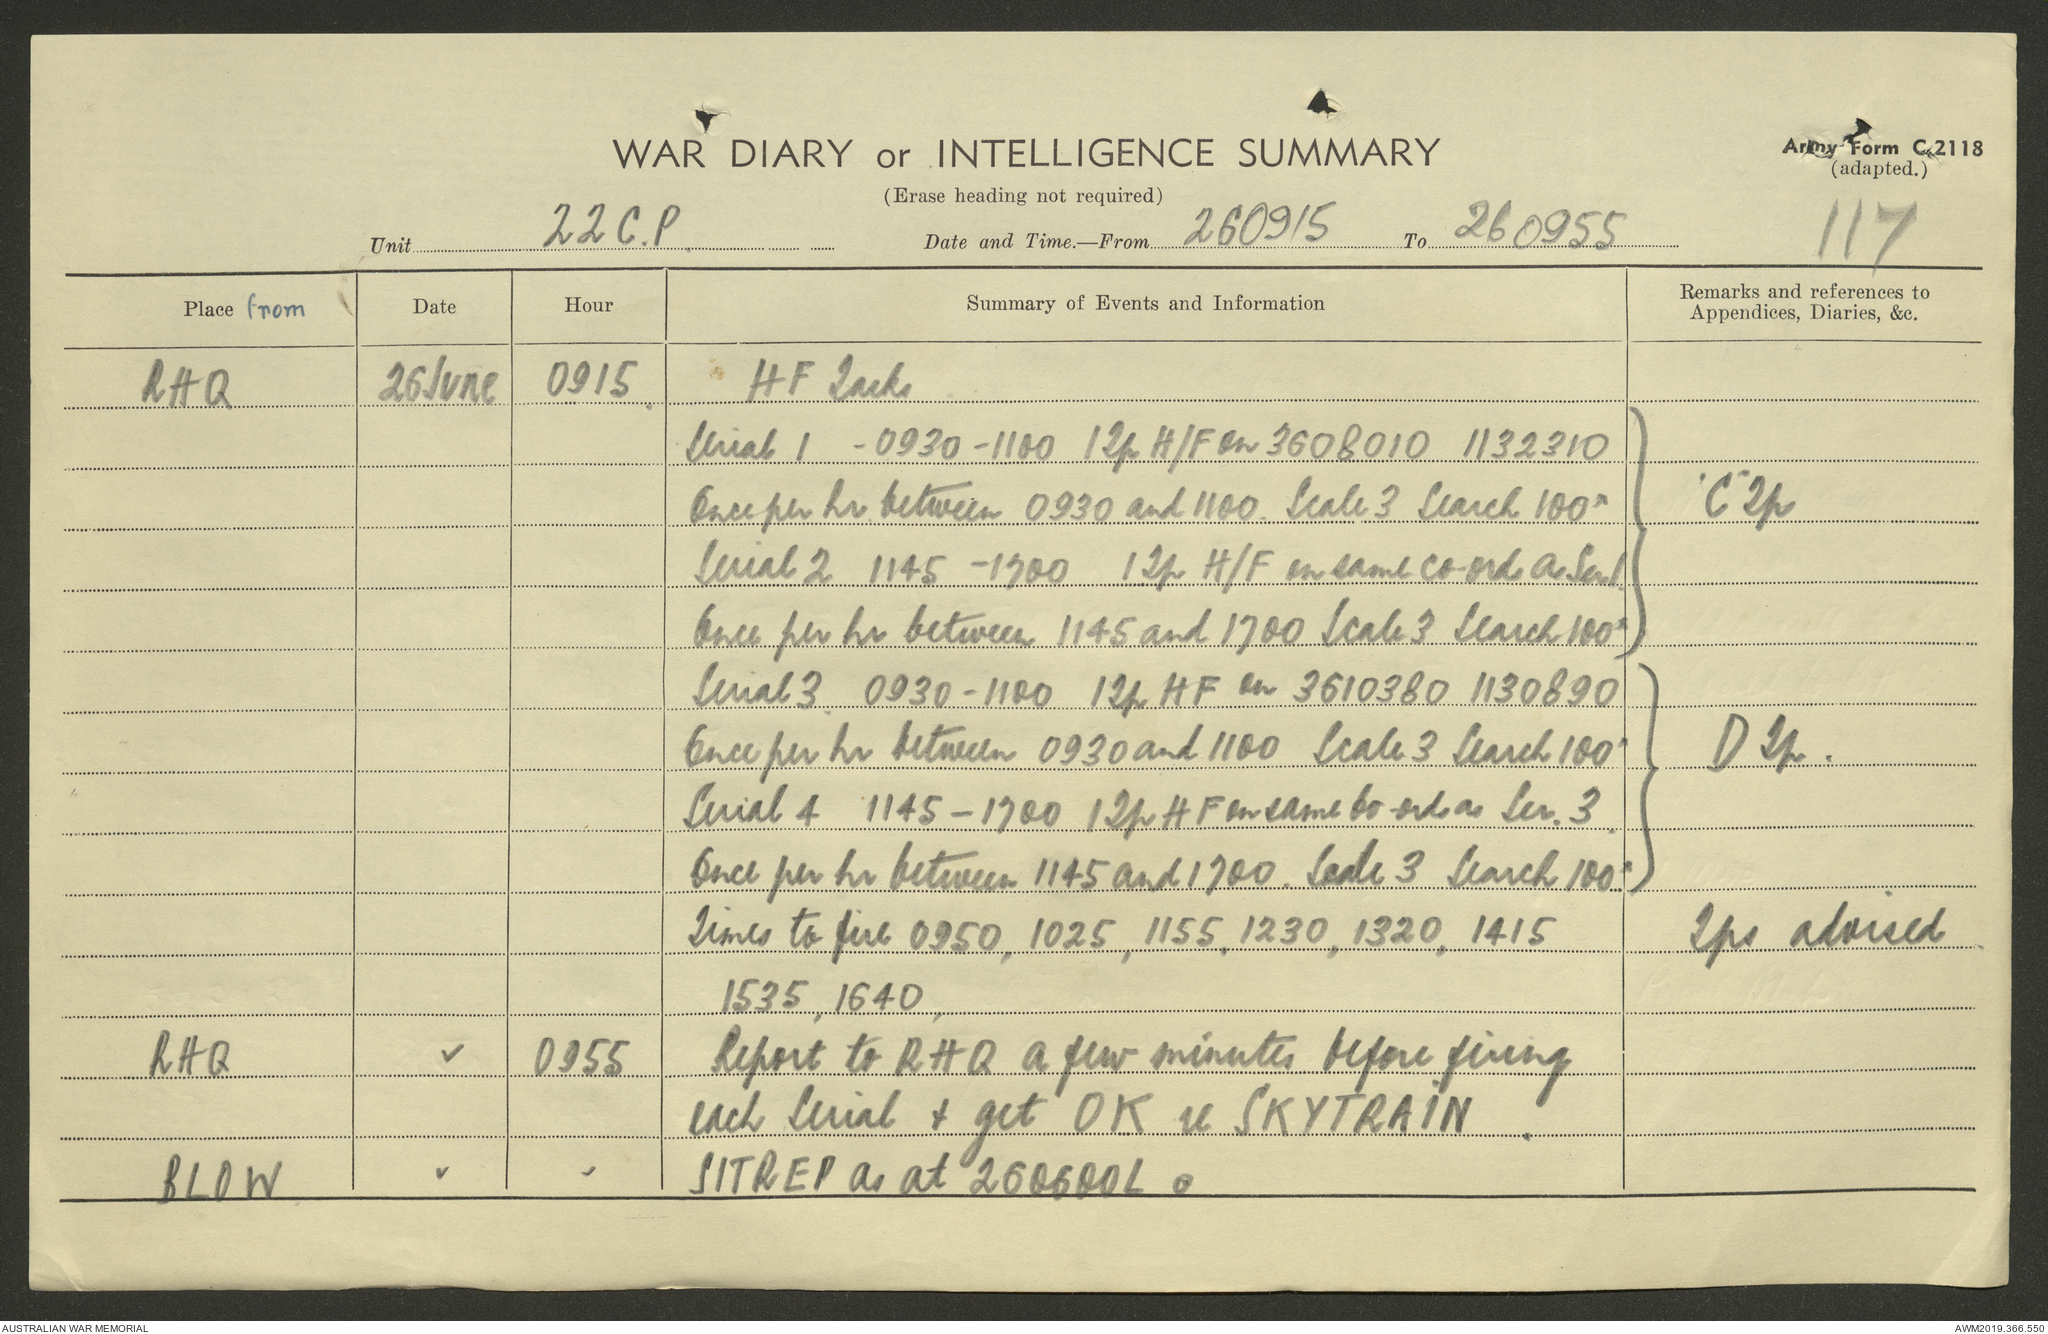 WAR DIARY or INTELLIGENCE SUMMARY
Army Form C.2118
(adapted.)
(Erase heading not required)
117
Unit 22 C.P. Date and Time.—From 260915 To 260955
Place from Date Hour Summary of Events and Information Remarks and references to Appendices, Diaries, &c.
RHQ 26 June 0915 HF Tasks
Serial 1 - 0930 - 1100 1 Tp H/F on 3608010 1132310
Once per hr between 0930 and 1100. Scale 3 Search 100x 'C' Tp
Serial 2 1145 - 1700 1 Tp H/F on same co-ords as Ser 1
Once per hr between 1145 and 1700 Scale 3 Search 100x
Serial 3 0930 - 1100 1 Tp HF on 3610380 1130890
Once per hr between 0930 and 1100 Scale 3 Search 100x D Tp.
Serial 4 1145 - 1700 1 Tp HF on same co-ords as Ser. 3.
Once per hr between 1145 and 1700. Scale 3 Search 100x
Times to fire 0950, 1025, 1155, 1230, 1320, 1415 Tps advised
1535, 1640,
RHQ ✓ 0955 Report to RHQ a few minutes before firing
each Serial + get OK re SKYTRAIN.
BLOW ✓ ✓ SITREP as at 260600L o
AUSTRALIAN WAR MEMORIAL
AWM2019.366.550